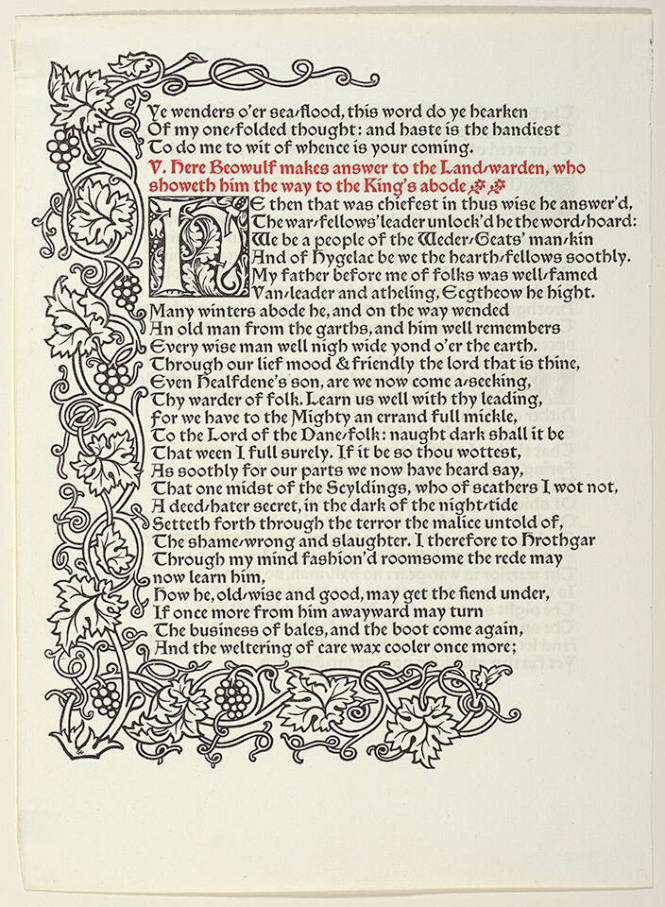 Ye wenders o'er sea-flood, this word do ye hearken
Of my one-folded thought: and haste is the handiest
To do me to wit of whence is your coming.
V. Here Beowulf makes answer to the Land-warden, who
showeth him the way to the King's abode
HE then that was chiefest in thus wise he answer'd,
The war-fellows' leader unlock'd he the word-hoard:
We be a people of the Weder-Geats' man-kin
And of Hygelac be we the hearth-fellows soothly.
My father before me of folks was well-famed
Van-leader and atheling, Ecgtheow he hight.
Many winters abode he, and on the way wended
An old man from the garths, and him well remembers
Every wise man well nigh wide yond o'er the earth.
Through our lief mood & friendly the lord that is thine,
Even Healfdene's son, are we now come a-seeking,
Thy warder of folk. Learn us well with thy leading,
For we have to the Mighty an errand full mickle,
To the Lord of the Dane-folk: naught dark shall it be
That ween I full surely. If it be so thou wottest,
As soothly for our parts we now have heard say,
That one midst of the Scyldings, who of scathers I wot not,
A deed-hater secret, in the dark of the night-tide
Setteth forth through the terror the malice untold of,
The shame-wrong and slaughter. I therefore to Hrothgar
Through my mind fashion'd roomsome the rede may
now learn him,
How he, old-wise and good, may get the fiend under,
If once more from him awayward may turn
The business of bales, and the boot come again,
And the weltering of care wax cooler once more;